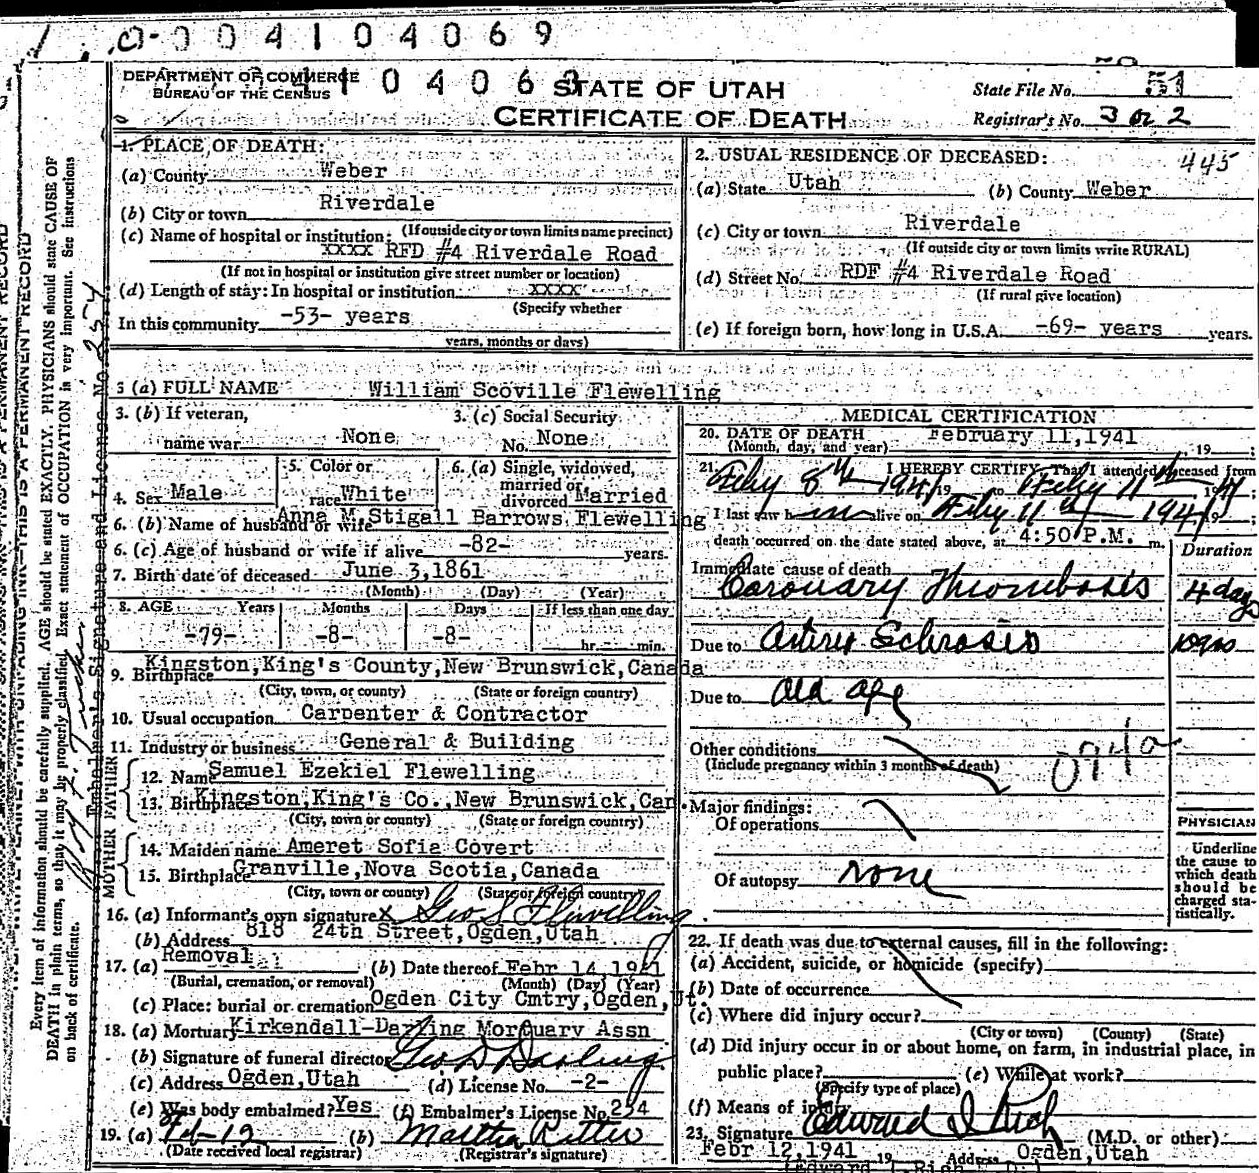 0-004104069
DEPARTMENT OF COMMERCE
BUREAU OF THE CENSUS
STATE OF UTAH
CERTIFICATE OF DEATH
State File No. 51
Registrar's No. 3 or 2
445
1. PLACE OF DEATH:
(a) County Weber
(b) City or town Riverdale
(If outside city or town limits name precinct)
(c) Name of hospital or institution:
xxxx RFD #4 Riverdale Road
(If not in hospital or institution give street number or location)
(d) Length of stay: In hospital or institution xxxx
(Specify whether
In this community -53- years
years, months or days)
2. USUAL RESIDENCE OF DECEASED:
(a) State Utah (b) County Weber
(c) City or town Riverdale
(If outside city or town limits write RURAL)
(d) Street No. RDF #4 Riverdale Road
(If rural give location)
(e) If foreign born, how long in U.S.A. -69- years years.
3 (a) FULL NAME William Scoville Flewelling
3. (b) If veteran, name war None
3. (c) Social Security No. None
4. Sex Male
5. Color or race White
6. (a) Single, widowed, married or divorced Married
6. (b) Name of husband or wife Anna M Stigall Barrows Flewelling
6. (c) Age of husband or wife if alive -82- years.
7. Birth date of deceased June 3,1861
(Month) (Day) (Year)
8. AGE Years Months Days If less than one day
-79- -8- -8- hr. min.
9. Birthplace Kingston,King's County,New Brunswick,Canada
(City, town, or county) (State or foreign country)
10. Usual occupation Carpenter & Contractor
11. Industry or business General & Building
FATHER
12. Name Samuel Ezekiel Flewelling
13. Birthplace Kingston,King's Co.,New Brunswick,Can.
(City, town or county) (State or foreign country)
MOTHER
14. Maiden name Ameret Sofia Covert
15. Birthplace Granville,Nova Scotia,Canada
(City, town or county) (State or foreign country)
16. (a) Informant's own signature x Geo S Flewelling
(b) Address 818 24th Street,Ogden,Utah
17. (a) Removal (b) Date thereof Febr 14,1941
(Burial, cremation, or removal) (Month) (Day) (Year)
(c) Place: burial or cremation Ogden City Cmtry,Ogden,Ut.
18. (a) Mortuary Kirkendall-Darling Morquary Assn
(b) Signature of funeral director Geo D Darling
(c) Address Ogden,Utah (d) License No. -2-
(e) Was body embalmed? Yes (f) Embalmer's License No. 254
19. (a) Feb-12 (b) Martha Ritter
(Date received local registrar) (Registrar's signature)
MEDICAL CERTIFICATION
20. DATE OF DEATH February 11,1941 19
(Month, day, and year)
21. I HEREBY CERTIFY, That I attended deceased from
Feby 8th 1941 to Feby 11th 1941
I last saw him alive on Feby 11th 1941
death occurred on the date stated above, at 4:50 P.M. m.
Duration
Immediate cause of death
Coronary Thrombosis 4 day
Due to Arterio Sclrosis
Due to old age
Other conditions
(Include pregnancy within 3 months of death)
094a
Major findings:
Of operations
Of autopsy none
PHYSICIAN
Underline the cause to which death should be charged statistically.
22. If death was due to external causes, fill in the following:
(a) Accident, suicide, or homicide (specify)
(b) Date of occurrence
(c) Where did injury occur?
(City or town) (County) (State)
(d) Did injury occur in or about home, on farm, in industrial place, in
public place? (e) While at work?
(Specify type of place)
(f) Means of injury
23. Signature Edward I Rich (M.D. or other)
Febr 12,1941 19 Address Ogden,Utah
(Edward I. Rich M.D.)
Every item of information should be carefully supplied. AGE should be stated EXACTLY. PHYSICIANS should state CAUSE OF
DEATH in plain terms, so that it may be properly classified. Exact statement of OCCUPATION is very important. See instructions
on back of certificate.
Embalmer's Signature and License No. 254